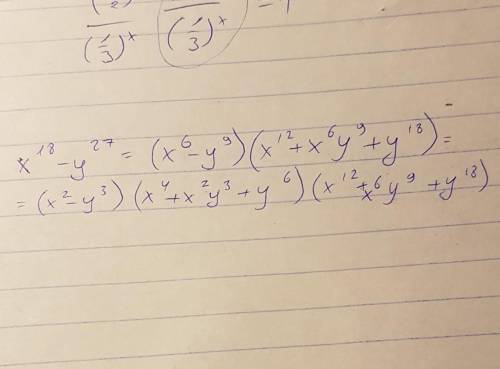 2
(1/3)^x (1/3)^x = 1
x^18 - y^27 = (x^6 - y^9)(x^12 + x^6 y^9 + y^18) =
= (x^2 - y^3)(x^4 + x^2 y^3 + y^6)(x^12 + x^6 y^9 + y^18)